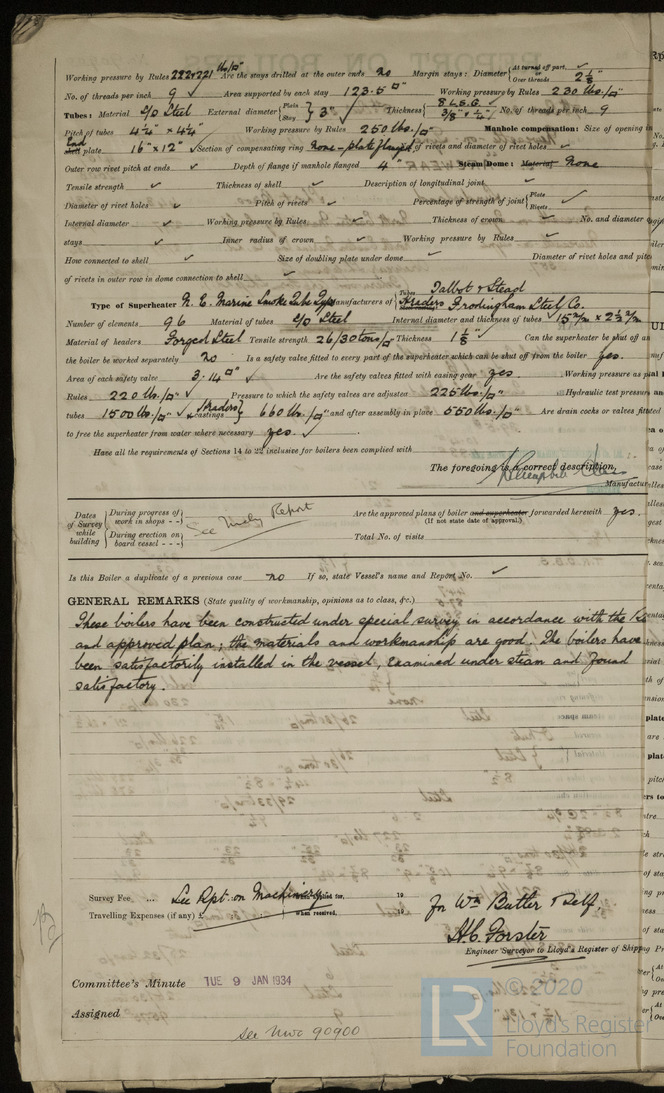 Working pressure by Rules 222 & 221 lbs/□" Are the stays drilled at the outer ends no Margin stays: Diameter { At turned off part, ✓ or Over threads 2 1/8"
No. of threads per inch 9 ✓ Area supported by each stay 123.5 □" Working pressure by Rules 230 lbs./□" ✓
Tubes: Material S/D Steel External diameter { Plain Stay } 3" ✓ Thickness { 8 L.S.G. ✓ 3/8" & 1/4" ✓ No. of threads per inch 9
Pitch of tubes 4 1/4" x 4 1/4" Working pressure by Rules 250 lbs./□" Manhole compensation: Size of opening in
End shell plate 16" x 12" ✓ Section of compensating ring None - plate flanged No. of rivets and diameter of rivet holes ✓
Outer row rivet pitch at ends ✓ Depth of flange if manhole flanged 4" Steam Dome: Material None
Tensile strength ✓ Thickness of shell ✓ Description of longitudinal joint ✓
Diameter of rivet holes ✓ Pitch of rivets ✓ Percentage of strength of joint { Plate ✓ Rivets
Internal diameter ✓ Working pressure by Rules ✓ Thickness of crown ✓ No. and diameter
stays ✓ Inner radius of crown ✓ Working pressure by Rules ✓
How connected to shell ✓ Size of doubling plate under dome ✓ Diameter of rivet holes and pitch
of rivets in outer row in dome connection to shell ✓
Type of Superheater N. E. Marine Smoke Tube Type Manufacturers of { Tubes Talbot & Stead Headers Frodingham Steel Co.
Number of elements 96 Material of tubes S/D Steel Internal diameter and thickness of tubes 15 m/m x 2 1/2 m/m
Material of headers Forged Steel Tensile strength 26/30 tons/□" Thickness 1 1/8" ✓ Can the superheater be shut off and
the boiler be worked separately no Is a safety valve fitted to every part of the superheater which can be shut off from the boiler yes.
Area of each safety valve 3.14 □" ✓ Are the safety valves fitted with easing gear yes ✓ Working pressure as p
Rules 220 lbs./□" ✓ Pressure to which the safety valves are adjusted 225 lbs./□" Hydraulic test pressure
tubes 1500 lbs./□" ✓ Headers & castings } 660 lbs./□" and after assembly in place 550 lbs./□" Are drain cocks or valves fitted
to free the superheater from water where necessary yes. ✓
Have all the requirements of Sections 14 to 22 inclusive for boilers been complied with
The foregoing is a correct description,
Manufactur
Dates of Survey while building { During progress of work in shops - - } { During erection on board vessel - - - } See Mchy Report
Are the approved plans of boiler and superheater forwarded herewith yes.
(If not state date of approval.)
Total No. of visits
Is this Boiler a duplicate of a previous case no If so, state Vessel's name and Report No. ✓
GENERAL REMARKS (State quality of workmanship, opinions as to class, &c.)
These boilers have been constructed under special survey in accordance with the Rules
and approved plan; the materials and workmanship are good. The boilers have
been satisfactorily installed in the vessel, examined under steam and found
satisfactory.
Survey Fee, ... See Rpt. on Machinery When applied for, 19
Travelling Expenses (if any) £ When received, 19
For Wm Butler & Self
H.C. Forster
Engineer Surveyor to Lloyd's Register of Shipping
Committee's Minute TUE 9 JAN 1934
Assigned
See Nwc 90900
LR
© 2020
Lloyd's Register
Foundation